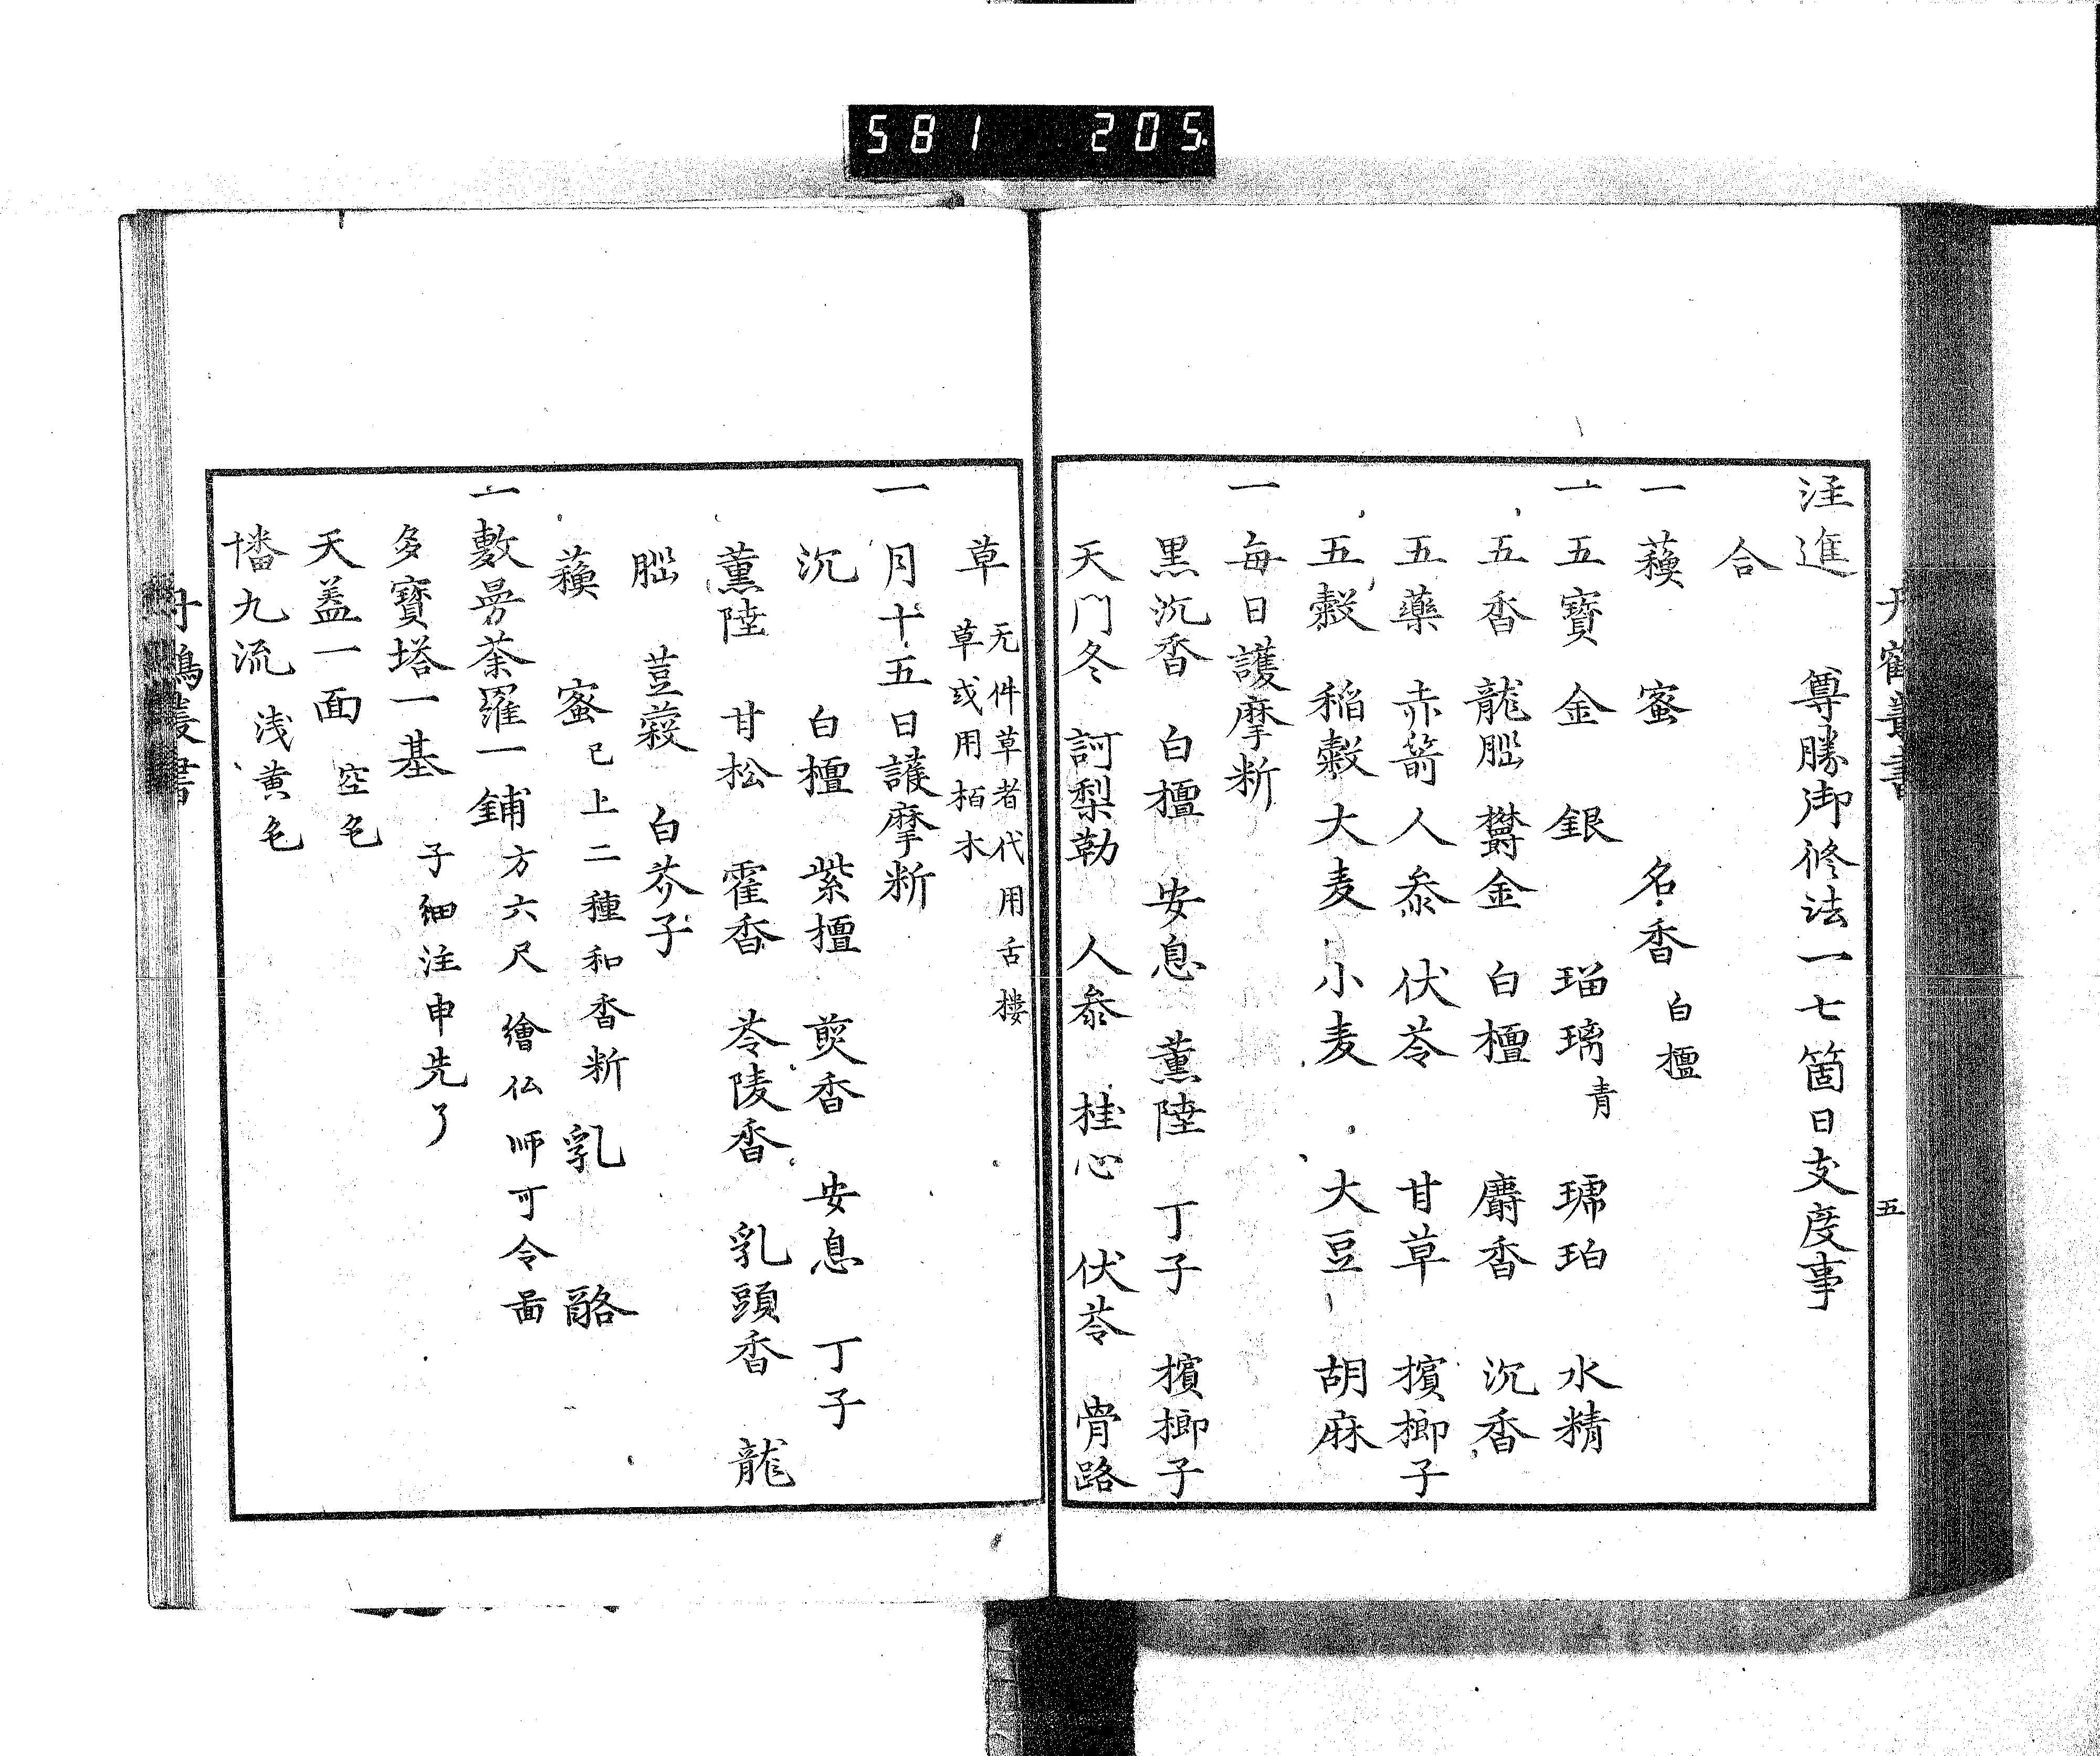 581 205
丹鶴叢書
五
注進 尊勝御修法一七箇日支度事
合
一 蘓 蜜 名香 白檀
一 五寶 金 銀 瑠璃青 琥珀 水精
五香 龍𦛁 欝金 白檀 麝香 沉香
五藥 赤箭 人叅 伏苓 甘草 擯榔子
五穀 稲穀 大麦 小麦 大豆 胡麻
一 毎日護摩斫
黒沉香 白檀 安息 薫陸 丁子 擯榔子
天門冬 訶梨勒 人叅 桂心 伏苓 骨路
草 无件草者代用舌樓
草或用栢木
一 月十五日護摩斫
沉 白檀 紫檀 煎香 安息 丁子
薫陸 甘松 霍香 苓陵香 乳頭香 龍
𦛁 荳蔲 白芥子
蘓 蜜 已上二種和香斫 乳 酪
一 敷曼荼羅一鋪 方六尺 繪仏師可令啚
多寶塔一基 子細注申先了
天盖一面 空色
幡九流 浅黄色
丹鶴叢書